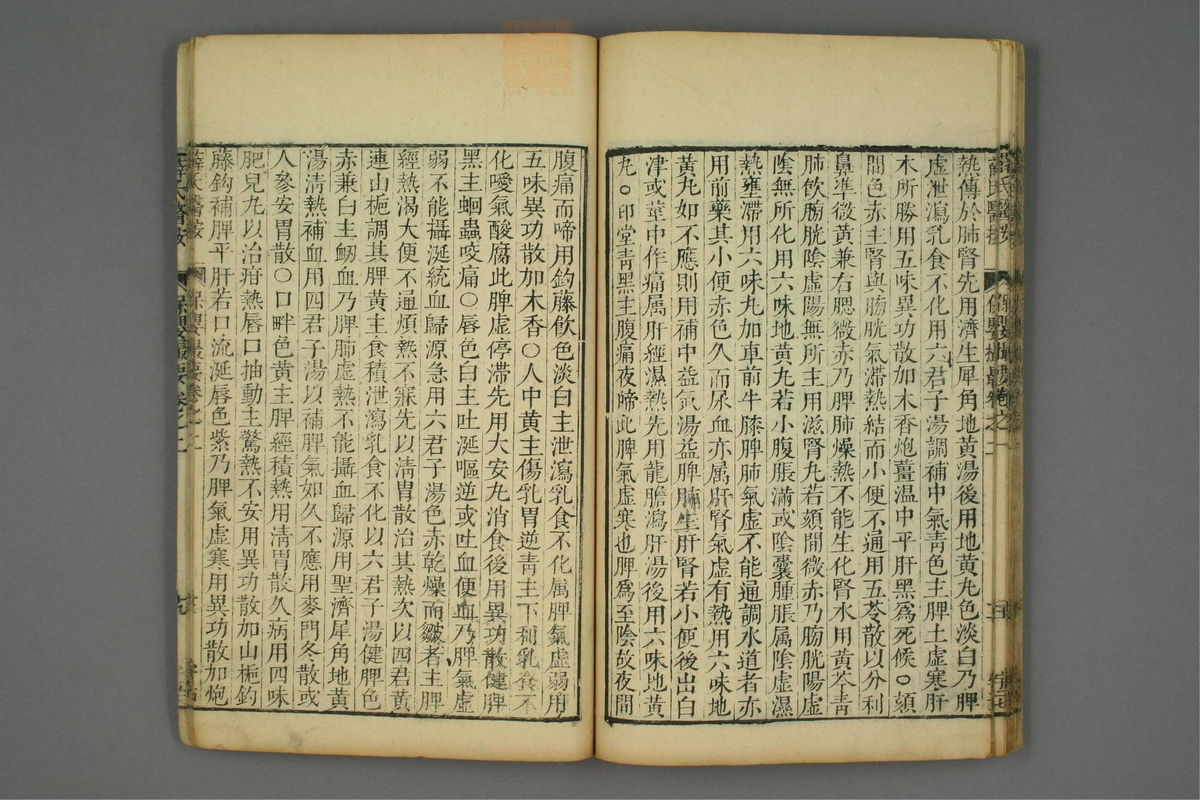 熱傳於肺腎先用濟生犀角地黃湯後用地黃丸色淡白乃脾
虛泄瀉乳食不化用六君子湯調補中氣青色主脾土虛寒肝
木所勝用五味異功散加木香炮薑溫中平肝黑爲死候○頦
間色赤主腎與膀胱氣滯熱結而小便不通用五苓散以分利
鼻準微黃兼右腮微赤乃脾肺燥熱不能生化腎水用黃芩清
肺飲膀胱陰虛陽無所主用滋腎丸若頦間微赤乃膀胱陽虛
陰無所化用六味地黃丸若小腹脹滿或陰囊腫脹属陰虛濕
熱壅滯用六味丸加車前牛膝脾肺氣虛不能通調水道者亦
用前藥其小便赤色久而尿血亦属肝腎氣虛有熱用六味地
黃丸如不應則用補中益氣湯益脾肺生肝腎若小便後出白
津或莖中作痛属肝經濕熱先用龍膽瀉肝湯後用六味地黃
丸○印堂青黑主腹痛夜啼此脾氣虛寒也脾爲至陰故夜間
腹痛而啼用釣藤飲色淡白主泄瀉乳食不化属脾氣虛弱用
五味異功散加木香○人中黃主傷乳胃逆青主下利乳食不
化噯氣酸腐此脾虛停滯先用大安丸消食後用異功散健脾
黑主蛔蟲咬痛○唇色白主吐涎嘔逆或吐血便血乃脾氣虛
弱不能攝涎統血歸源急用六君子湯色赤乾燥而皺者主脾
經熱渴大便不通煩熱不寐先以清胃散治其熱次以四君黃
連山梔調其脾黃主食積泄瀉乳食不化以六君子湯健脾色
赤兼白主衂血乃脾肺虛熱不能攝血歸源用聖濟犀角地黃
湯清熱補血用四君子湯以補脾氣如久不應用麥門冬散或
人參安胃散○口畔色黃主脾經積熱用清胃散久病用四味
肥兒丸以治疳熱唇口抽動主驚熱不安用異功散加山梔釣
藤鈎補脾平肝若口流涎唇色紫乃脾氣虛寒用異功散加炮
薛氏醫按　保嬰撮要卷之二